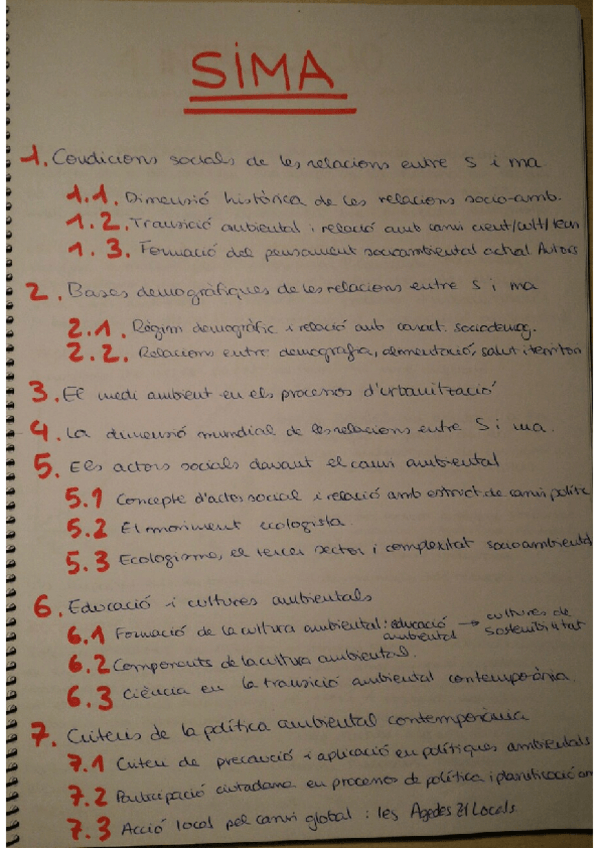 SIMA
1. Condicions socials de les relacions entre S i ma
1.1. Dimensió històrica de les relacions socio-amb.
1.2. Transició ambiental i relació amb canvi cient/cult/tecn
1.3. Formació del pensament socioambiental actual Autors
2. Bases demogràfiques de les relacions entre S i ma
2.1. Règim demogràfic i relació amb caract. sociodemog.
2.2. Relacions entre demografia, alimentació, salut i territori
3. El medi ambient en els processos d'urbanització
4. La dimensió mundial de les relacions entre S i ma.
5. Els actors socials davant el canvi ambiental
5.1 Concepte d'actor social i relació amb estruct. de canvi polític
5.2 El moviment ecologista.
5.3 Ecologisme, el tercer sector i complexitat socioambiental
6. Educació i cultures ambientals
6.1 Formació de la cultura ambiental: educació ambiental → cultures de sostenibilitat
6.2 Components de la cultura ambiental.
6.3 Ciència en la transició ambiental contemporània.
7. Criteris de la política ambiental contemporània
7.1 Criteri de precaució i aplicació en polítiques ambientals
7.2 Participació ciutadana en processos de política i planificació am
7.3 Acció local pel canvi global: les Agedes 21 Locals